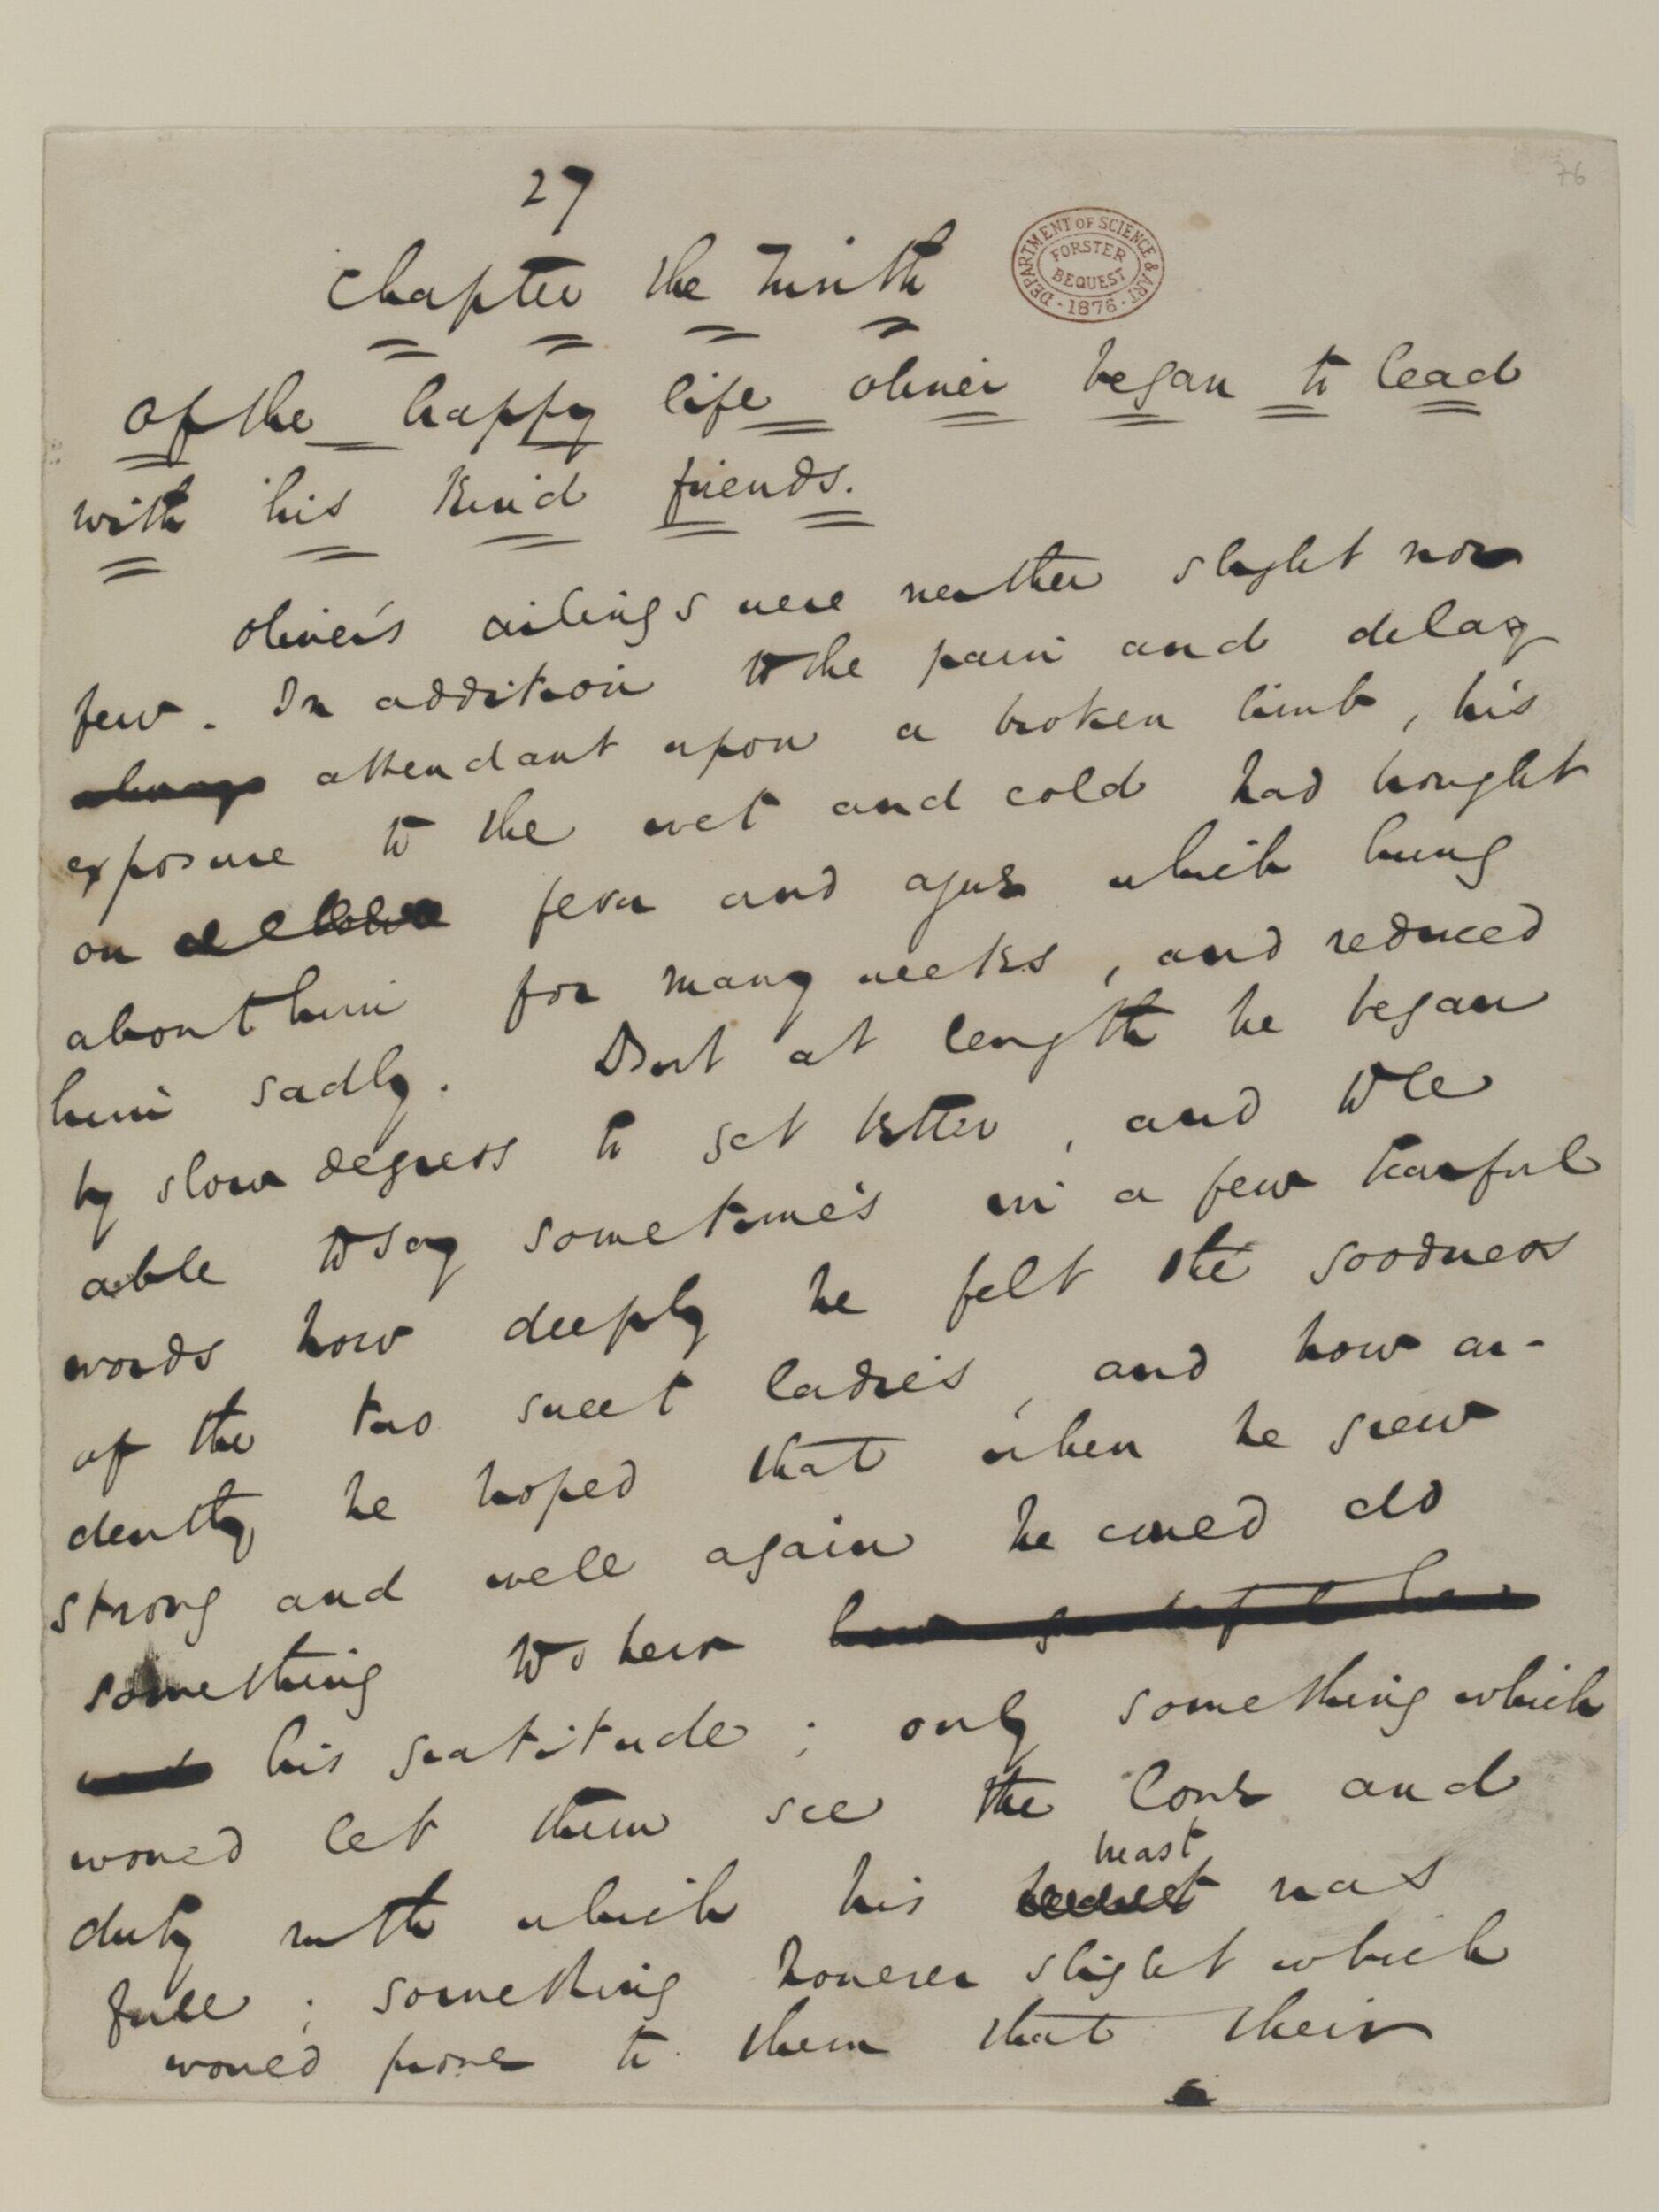 27
76
DEPARTMENT OF SCIENCE & ART
FORSTER
BEQUEST
1876
Chapter the Ninth
Of the happy life Oliver began to lead
with his kind friends.
Oliver's ailings were neither slight nor
few. In addition to the pain and delay
attendant upon a broken limb, his
exposure to the wet and cold had brought
on fever and ague which hung
about him for many weeks, and reduced
him sadly. But at length he began
by slow degrees to get better, and to be
able to say sometimes in a few tearful
words how deeply he felt the goodness
of the two sweet ladies, and how ar-
dently he hoped that when he grew
strong and well again he could do
something to shew
his gratitude; only something which
would let them see the love and
duty with which his heart was
full; something however slight which
would prove to them that their